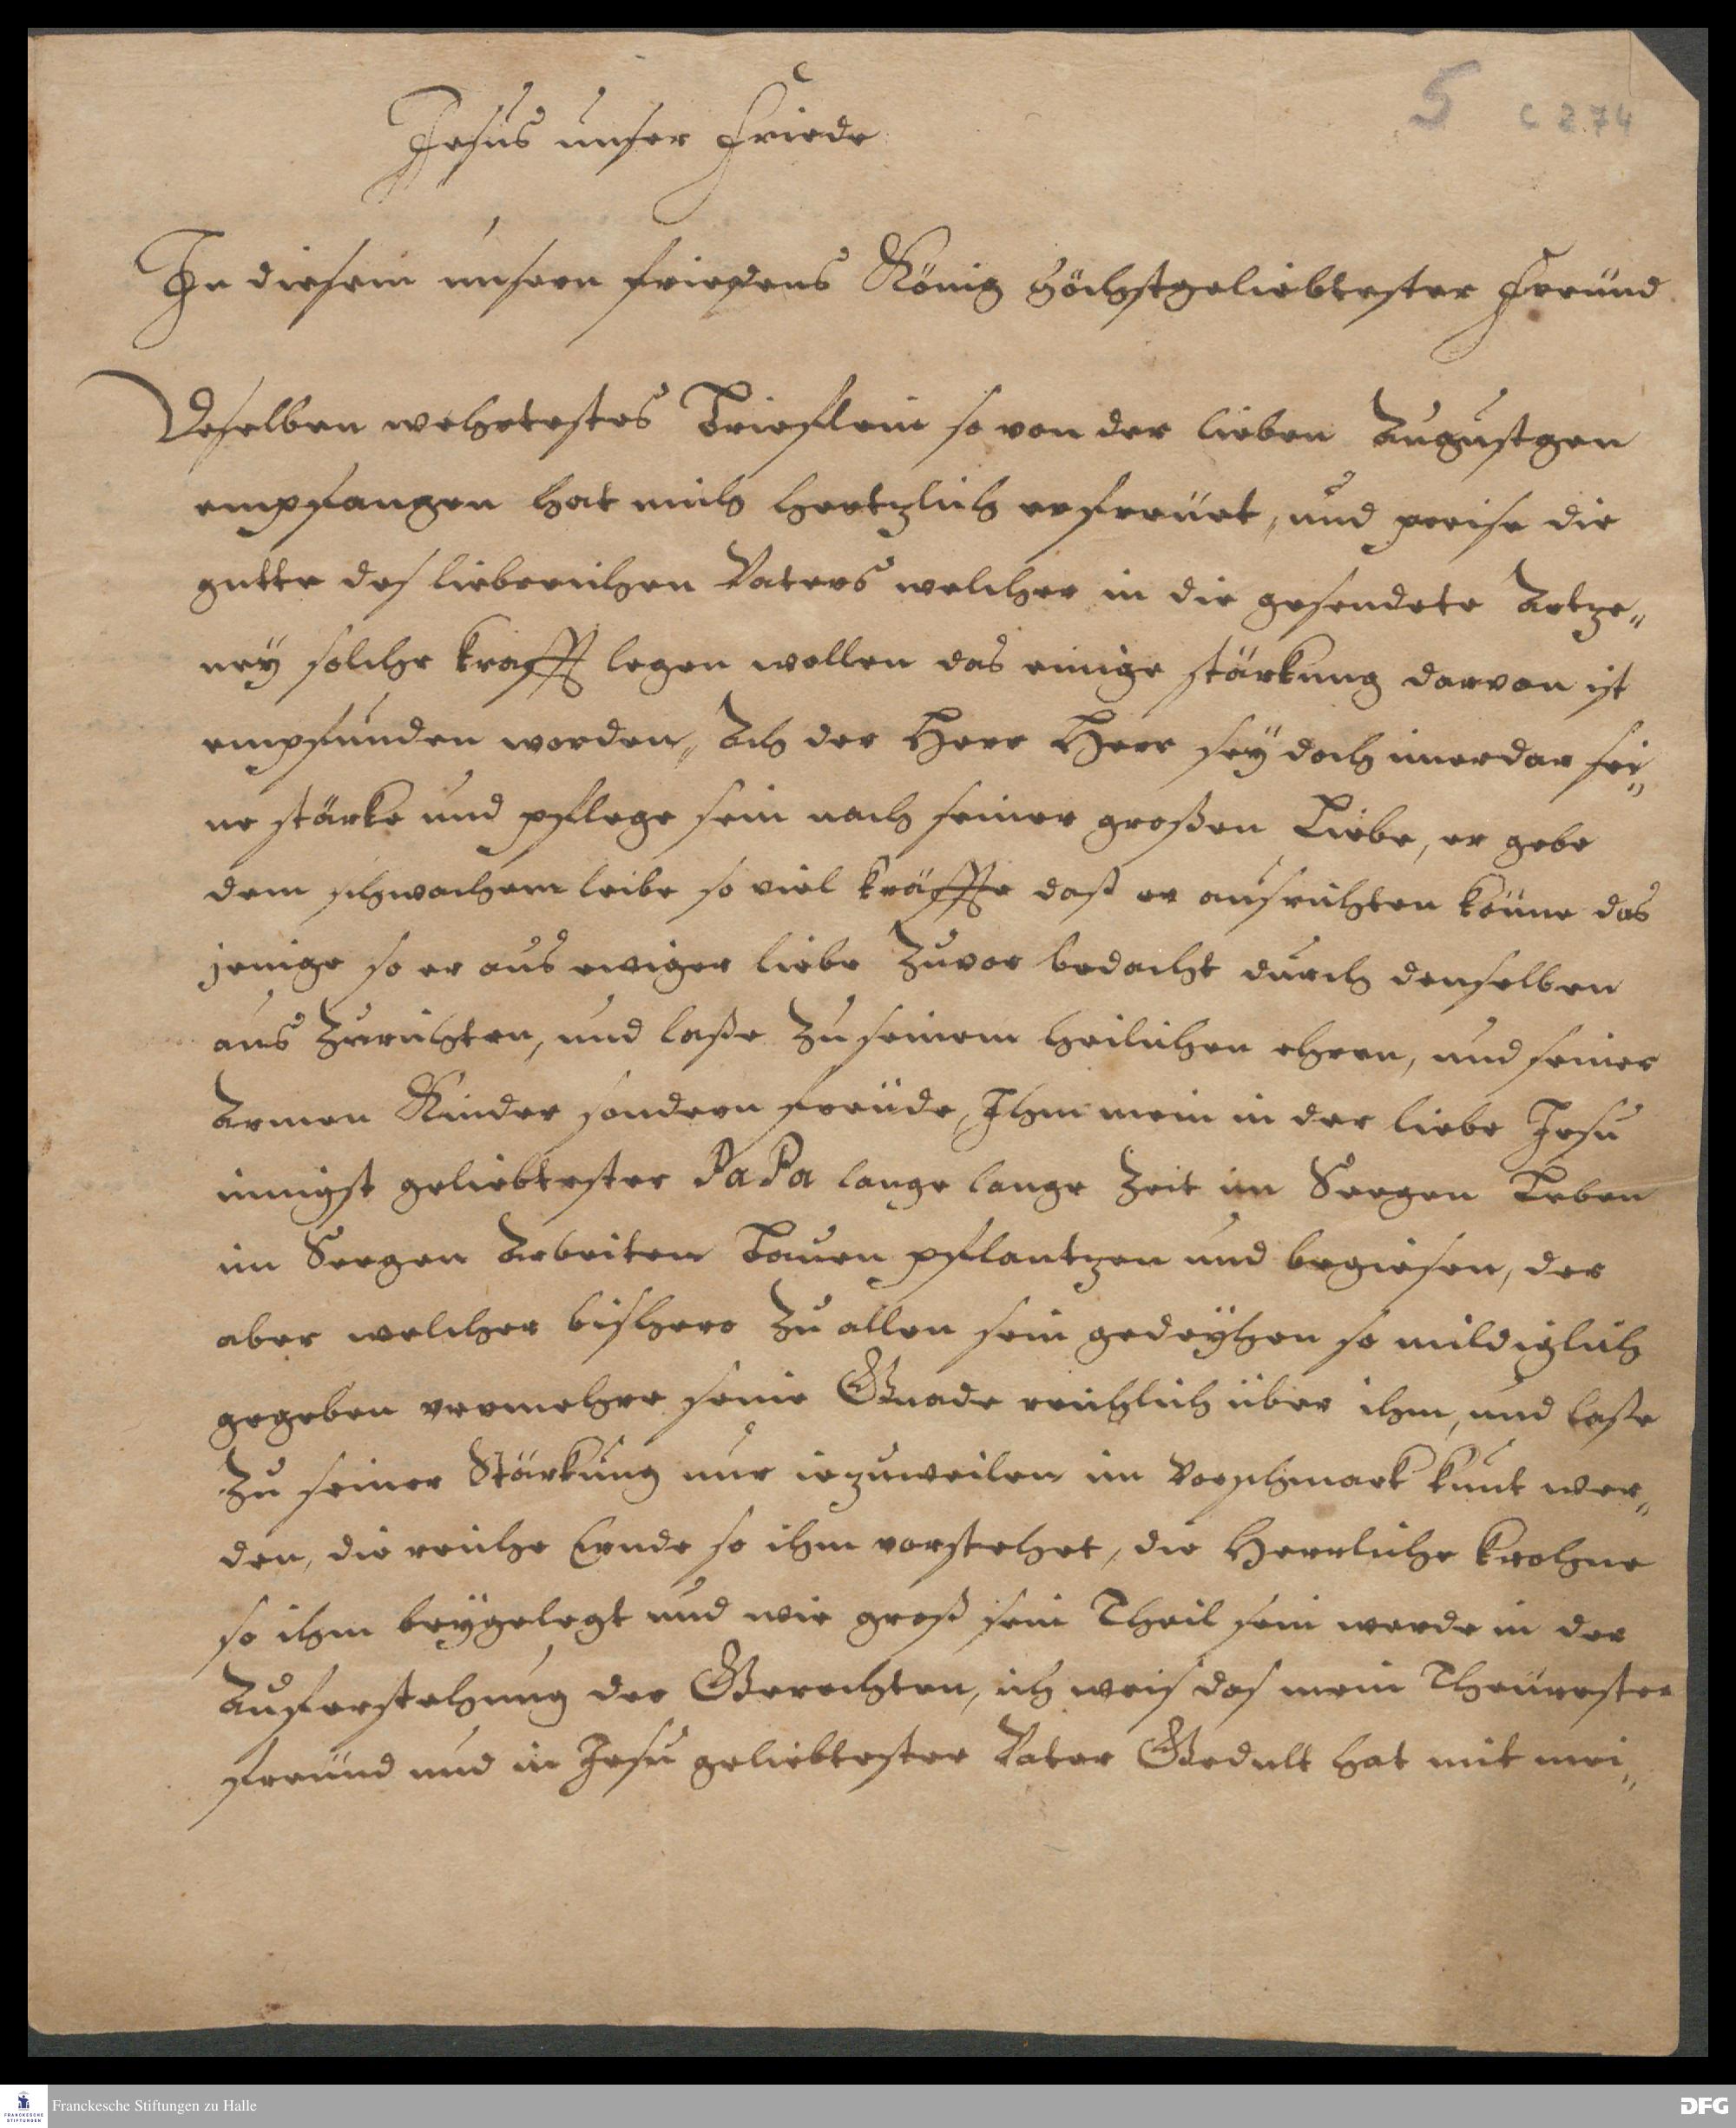 5 C 274
Jesus unser Friede
In diesem unsern friedens König höchstgeliebtester Freünd
Deselben wehrtestes Brieflein so von der lieben Augustgen
empfangen hat mich hertzlich erfreüet, und preise die
gutte des liebreichen Vaters welcher in die gesendete Artze„
ney solche krafft legen wollen das einige stärkung darvon ist
empfunden worden„ Ach der Herr Herr sey doch imerdar sei„
ne stärke und pflege sein nach seiner großen Liebe, er gebe
dem schwachem leibe so viel kräffte daß er ausrichten könne das
jenige so er aus ewiger liebe zuvor bedacht durch denselben
aus zurichten, und laße zu seinem heilichen ehren, und seiner
Armen Kinder sondern freüde, Ihm mein in der liebe Jesu
innigst geliebtester PaPa lange lange Zeit im Seegen Leben
im Seegen Arbeiten Bauen pflantzen und begiesen, der
aber welcher bishero zu allen sein gedeyhen so mildiglich
gegeben vermehre seine Gnade reichlich über ihm, und laße
zu seiner Stärkung nur iezuweilen im Vorschmack kunt wer„
den, die reiche Ernde so ihm vorstehet, die Herrliche krohne
so ihm beygelegt und wie groß sein Theil sein werde in der
Auferstehung der Gerechten, ich weis das mein Theürester
freünd und in Jesu geliebtester Vater Gedult hat mit mei„
Franckesche Stiftungen zu Halle
FRANCKESCHE
STIFTUNGEN
DFG